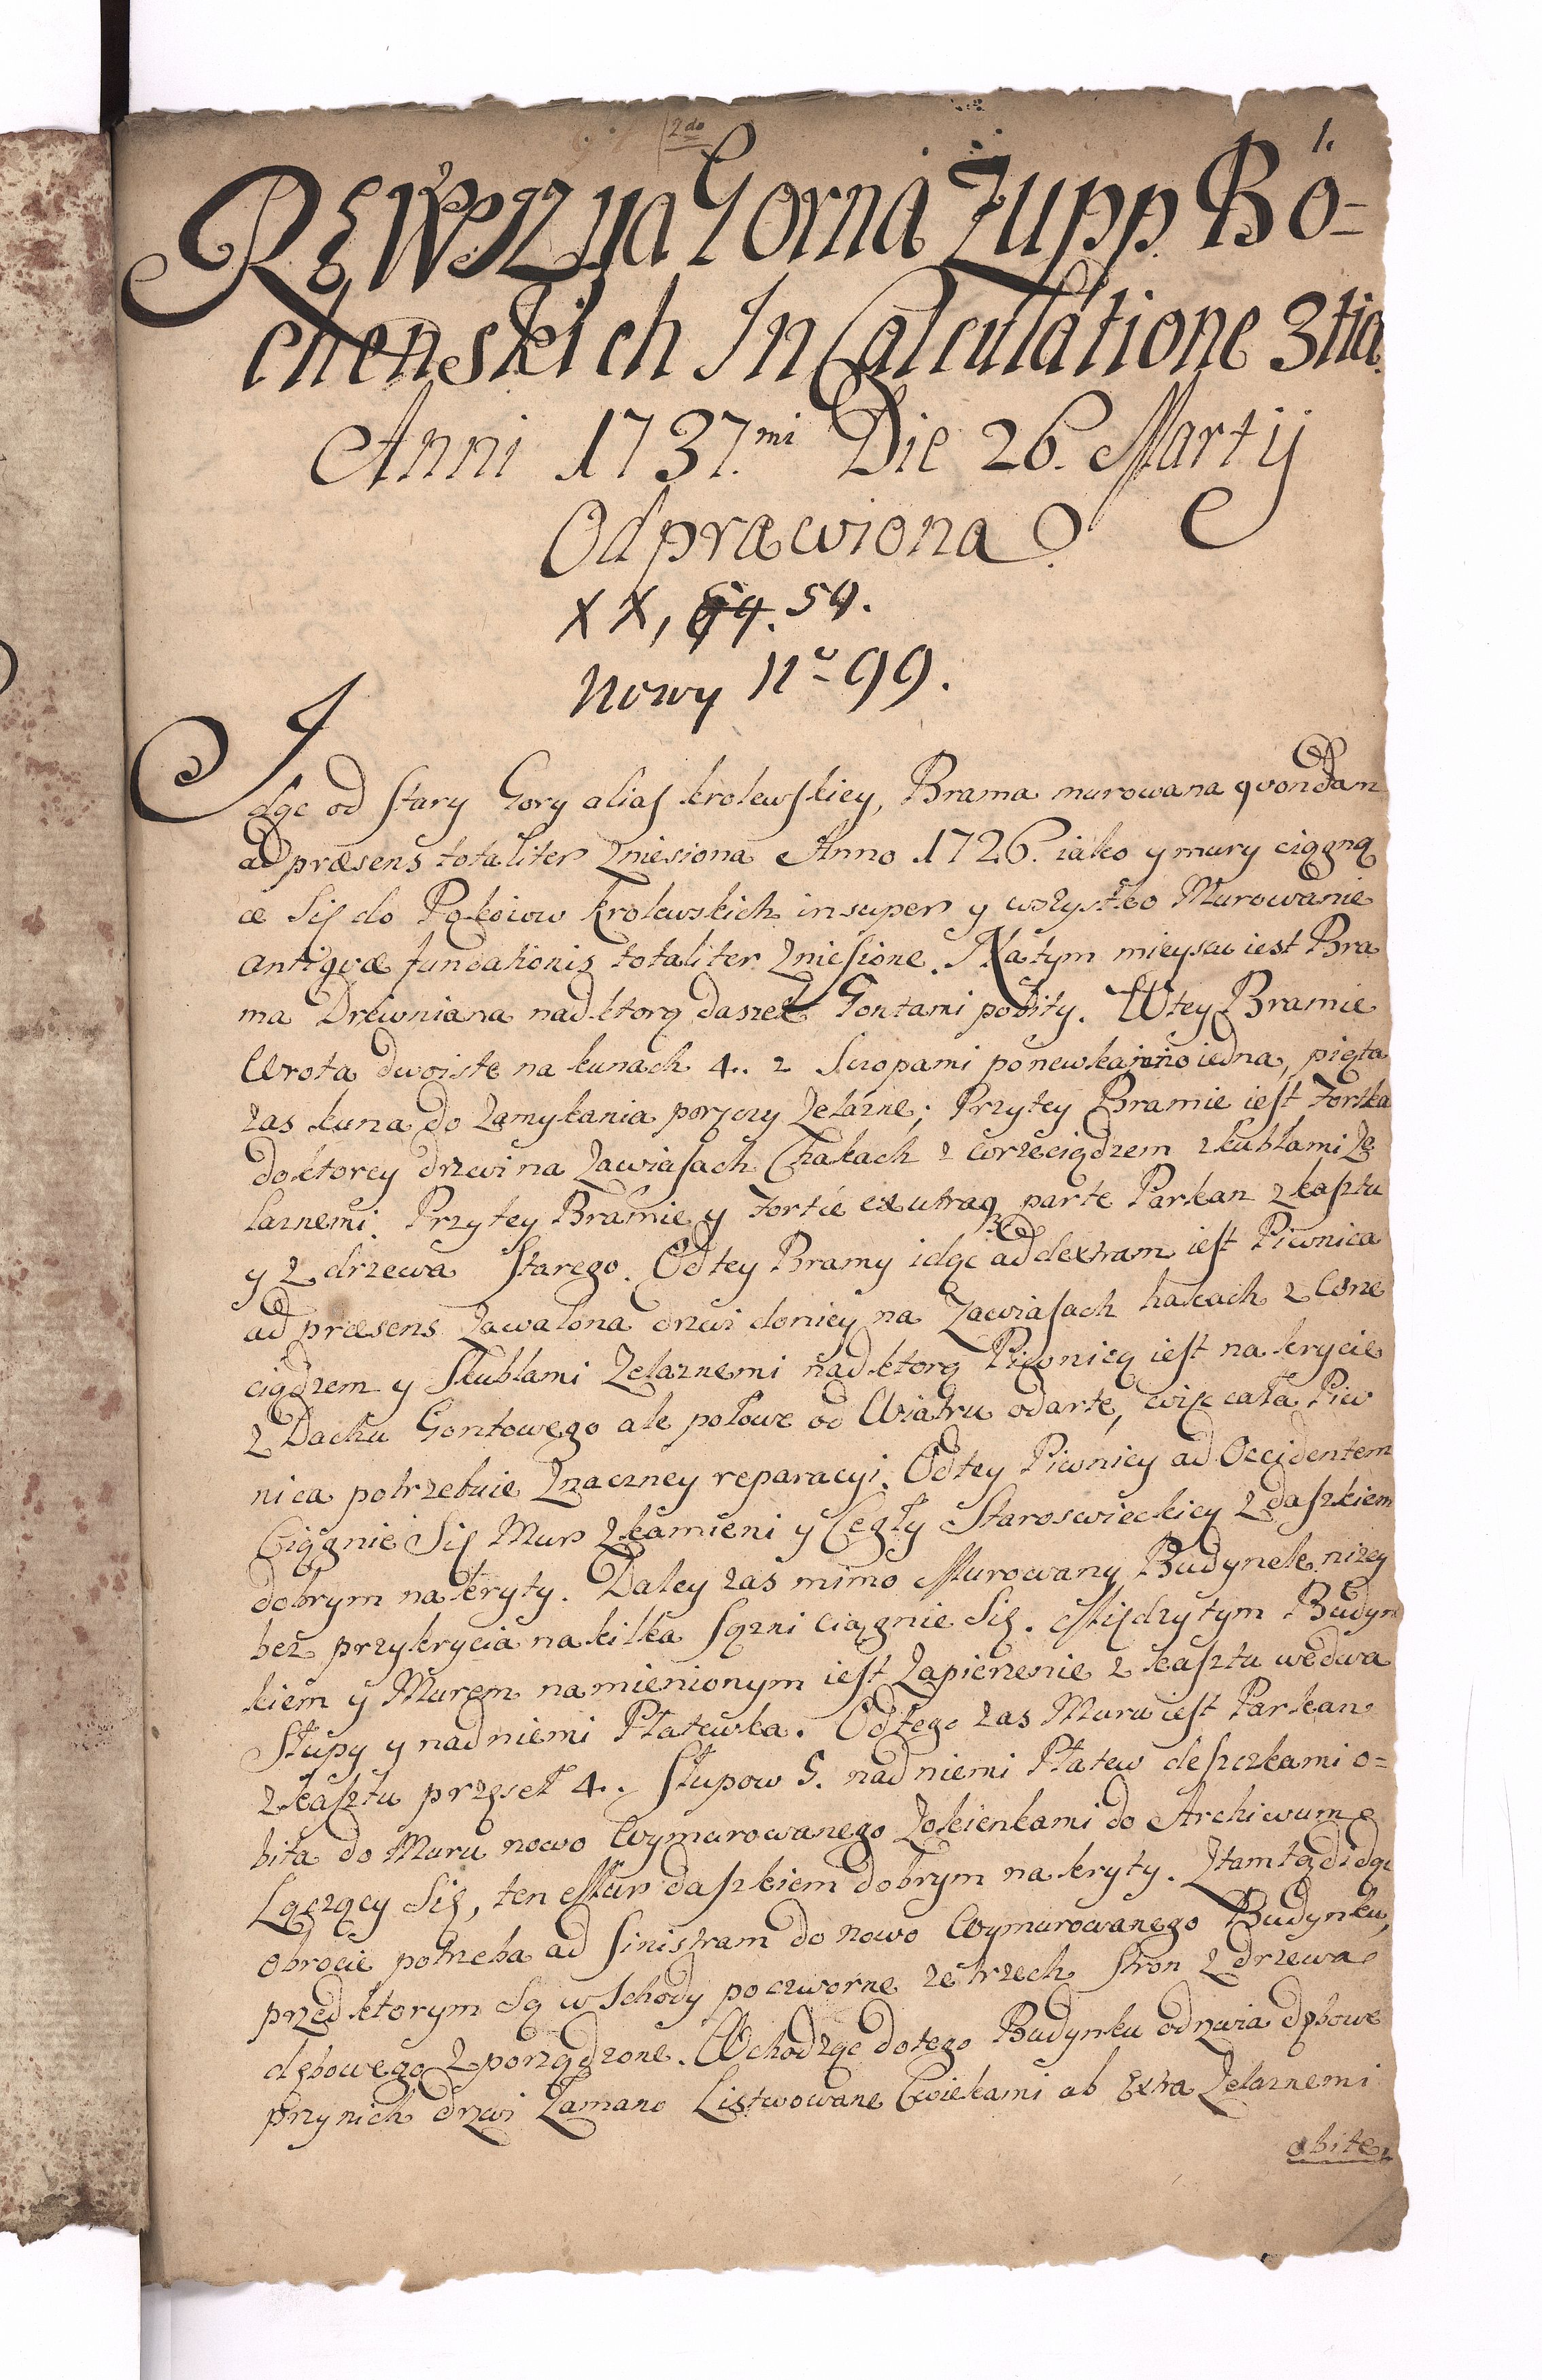 2do
1.
REWIZyia Gorna Zupp. Bo=
chenskich In Calculatione 3tia
Anni 1737.mi Die 26. Martij
Odprawiona.
XX, 54.
Nowy No 99.
Idąc od stary Gory alias krolewskiey, Brama murowana qvondam
ad præsens totaliter zniesiona Anno 1726. iako y mury ciągną
ce się do Pokoiow krolewskich insuper y wszystko Murowanie
antiqvæ fundationis totaliter zniesione. Na tym mieyscu iest Bra
ma Drewniana nad ktorą daszek Gontami pobity. W tey Bramie
Wrota dwoiste na kunach 4. z Sciopami iedna, piąta
zas kuna do zamykania poręczy żelazne; Przytey Bramie iest Fortka
do ktorey drzwi na Zawiasach Chakach z wrzeciądzem z kublami Ze
laznemi. Przy tey Bramie y Fortce ex utraq parte Parkan z kasztu
y z drzewa Starego. Od tey Bramy idąc ad dextram iest Piwnica
ad præsens Zawalona drzwi doniey na Zawiasach hakach z Wrze
ciądzem y Skublami Zelaznemi nad ktorą Piwnicą iest nakrycie
z Dachu Gontowego ale połowe od Wiatru odarte, więc cała Piw
nica potrzebuie Znaczney reparacyi. Od tey Piwnicy ad Occidentem
Ciągnie Się Mur z kamieni y Cegły Staroswieckiey z daszkiem
dobrym nakryty. Daley zas mimo Murowany Budynek nizey
bez przykrycia na kilka sązni ciągnie Się. Między tym Budyn
kiem y Murem namienionym iest Zapierzenie z kasztu we dwa
Słupy y nad niemi Płatewka. Od tego zas Muru iest Parkan
z kasztu przęseł 4. Słupow 5. nad niemi Płatew deszczkami o=
bita do Muru nowo Wymurowanego Zokienkami do Archiwum
Łączący Się, ten Mur daszkiem dobrym nakryty. Ztamtąd idąc
obrocic potrzeba ad Sinistram do nowo Wymurowanego Budynku,
przed ktorym Są wschody poczworne ze trzech Stron z drzewa
dębowego zporządzone. Wchodząc do tego Budynku odrzwia dębowe
przy nich drzwi Łamano Listwowane Cwiekami ab Extra Zelaznemi
obite,